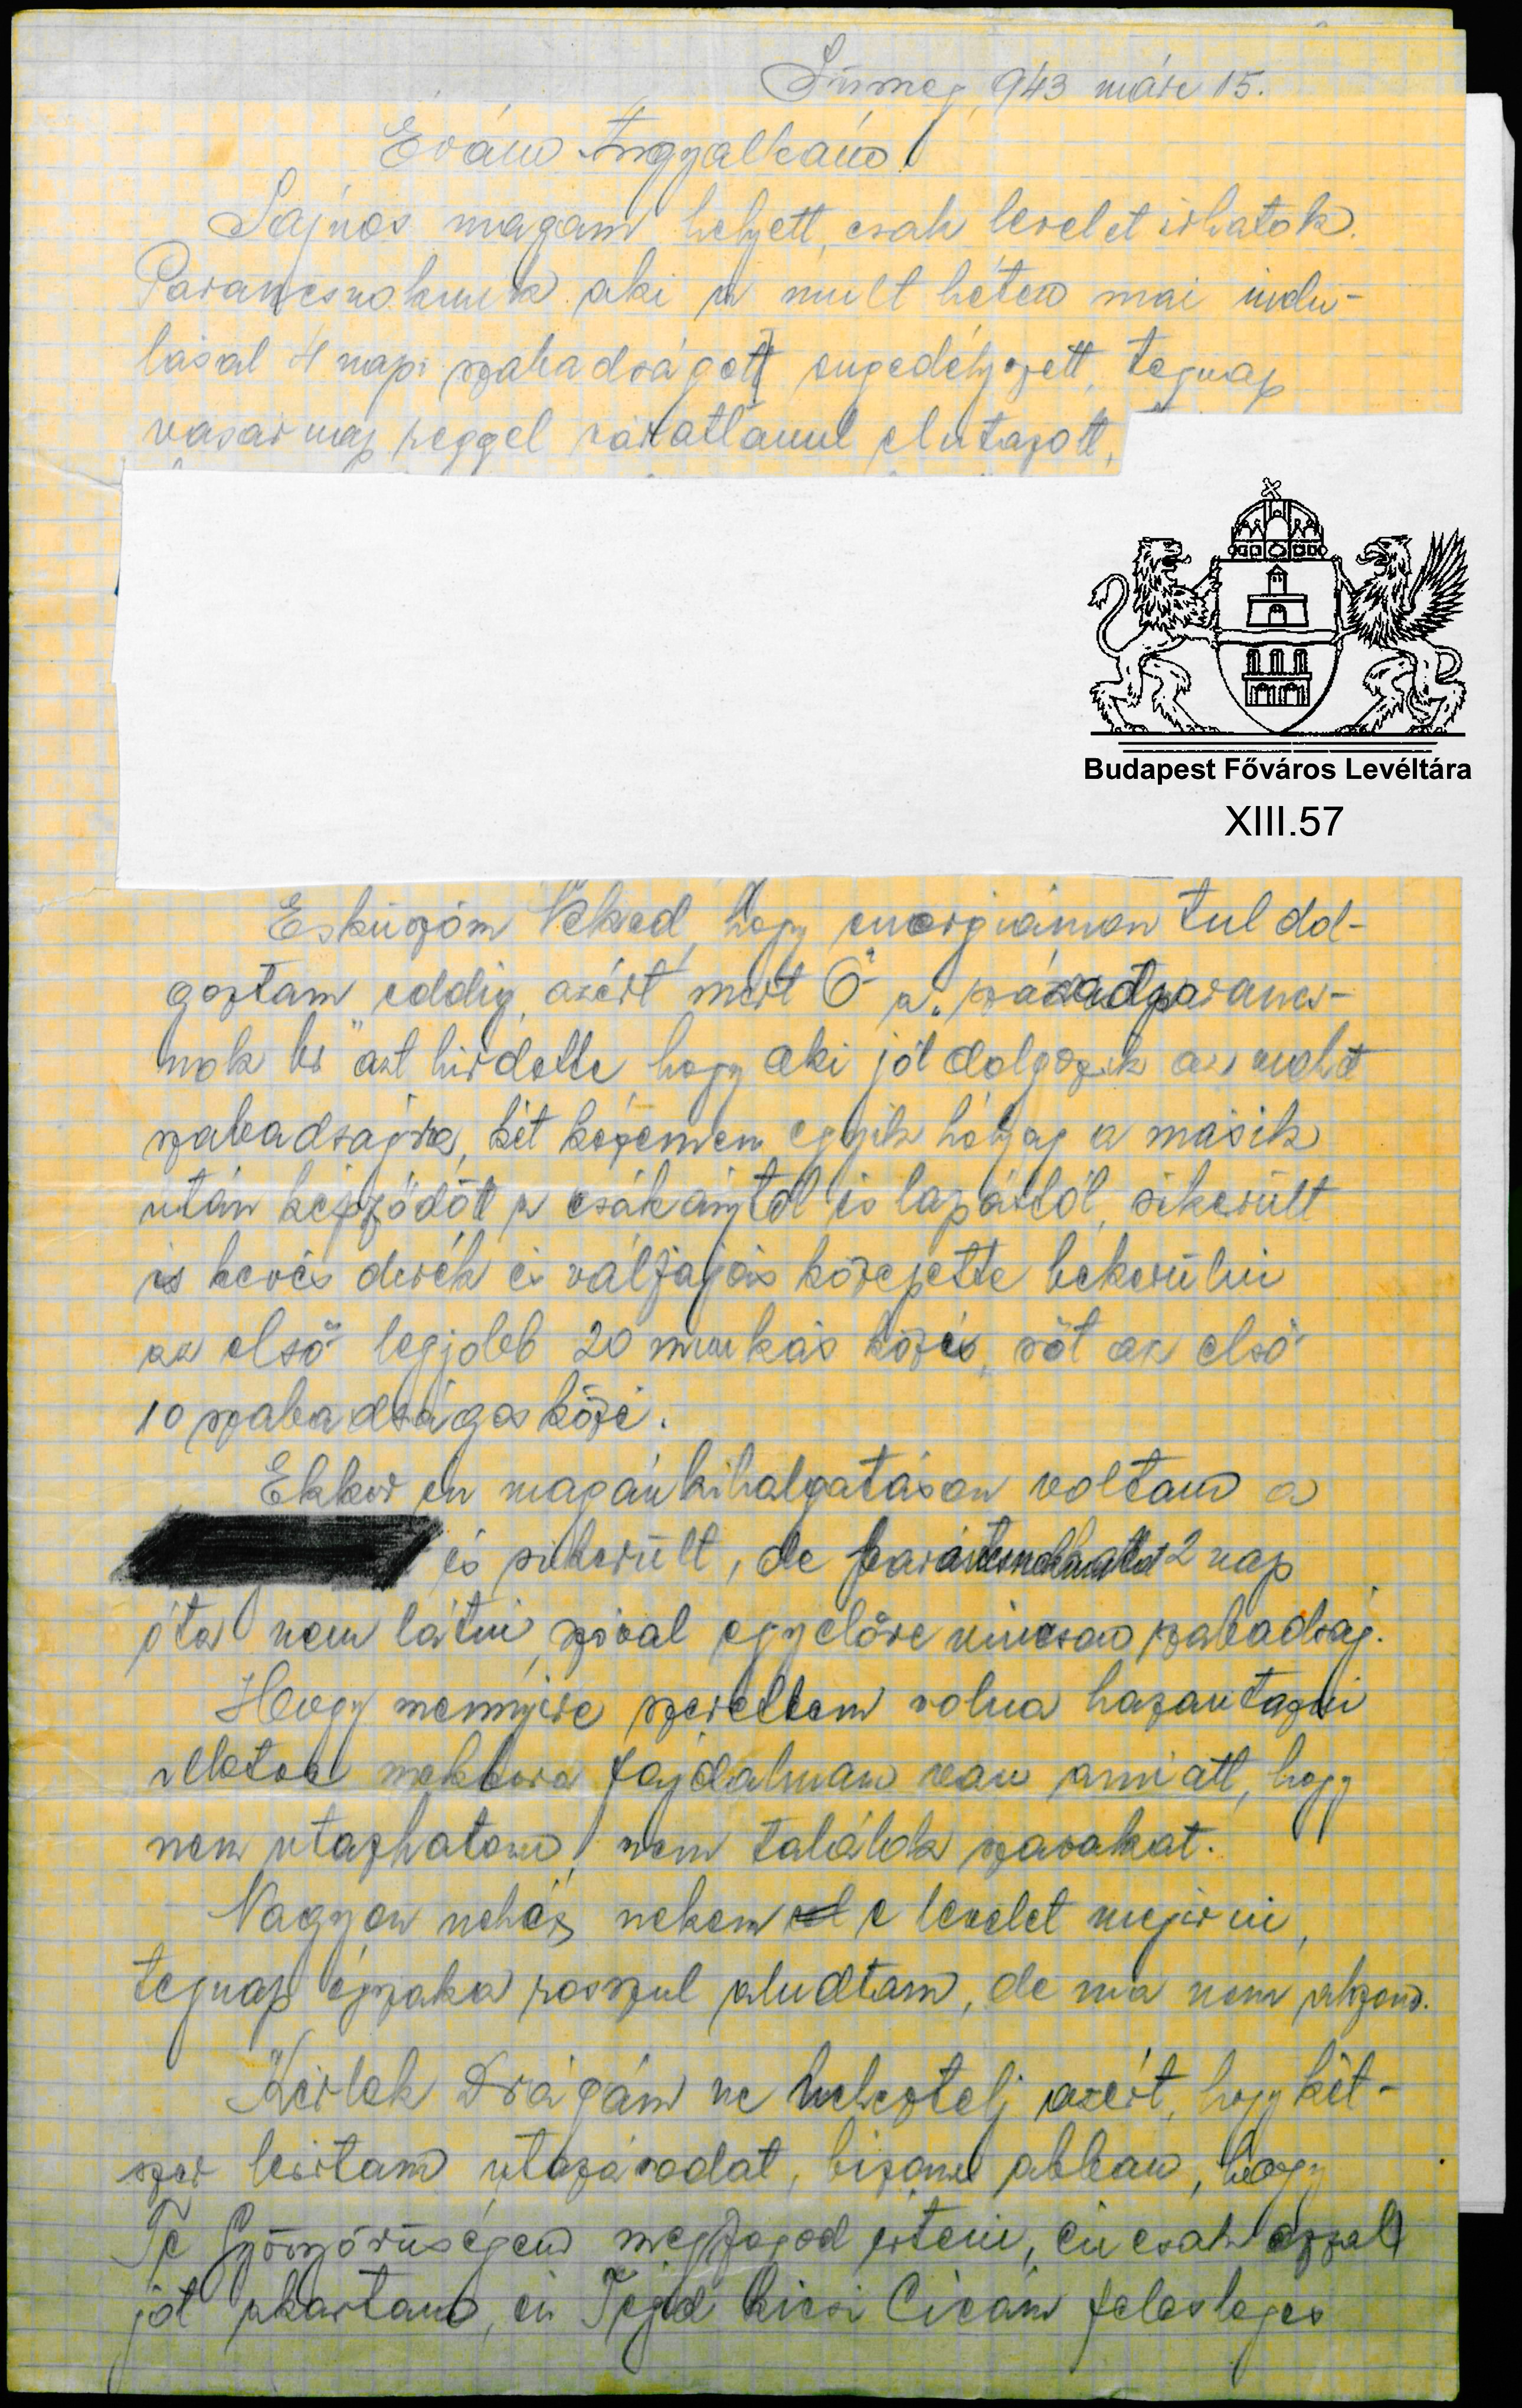 Sümeg, 943 márc 15.
Évám Angyalkám!
Sajnos magam helyett, csak levelet irhatok.
Parancsnokunk aki a mult héten mai indu-
lásal 4 napi szabadságot engedélyezett, tegnap
vasárnap reggel váratlanul elutazott,
Budapest Főváros Levéltára
XIII.57
Esküszöm Neked, hogy energiámon tul dol-
goztam eddig, azért mert Ő a „századparancs-
nok úr" azt hirdette, hogy aki jól dolgozik az mehet
szabadságra, két kezemen egyik hójag a másik
után képződött a csákánytól és lapáttól, sikerült
is kevés derék és válfájás közepette bekerülni
az első legjobb 20 munkás közé, sőt az első
10 szabadságos közé.
Ekkor én magánkihalgatáson voltam a
és sikerült, de 2 nap
óta nem látni, szóval egyelőre nincsen szabadság.
Hogy mennyire szerettem volna hazautazni
illetve mekkora fájdalmam van amiatt, hogy
nem utazhatom, nem találok szavakat.
Nagyon nehéz nekem e levelet megirni,
tegnap éjszaka rosszul aludtam, de ma nem alszom.
Kérlek Drágám ne neheztelj azért, hogy két-
szer leirtam utazásodat, bizom abban, hogy
Te Gyönyörüségem megfogod érteni, én csak azzal
jót akartam, én Téged kicsi Cicám felesleges